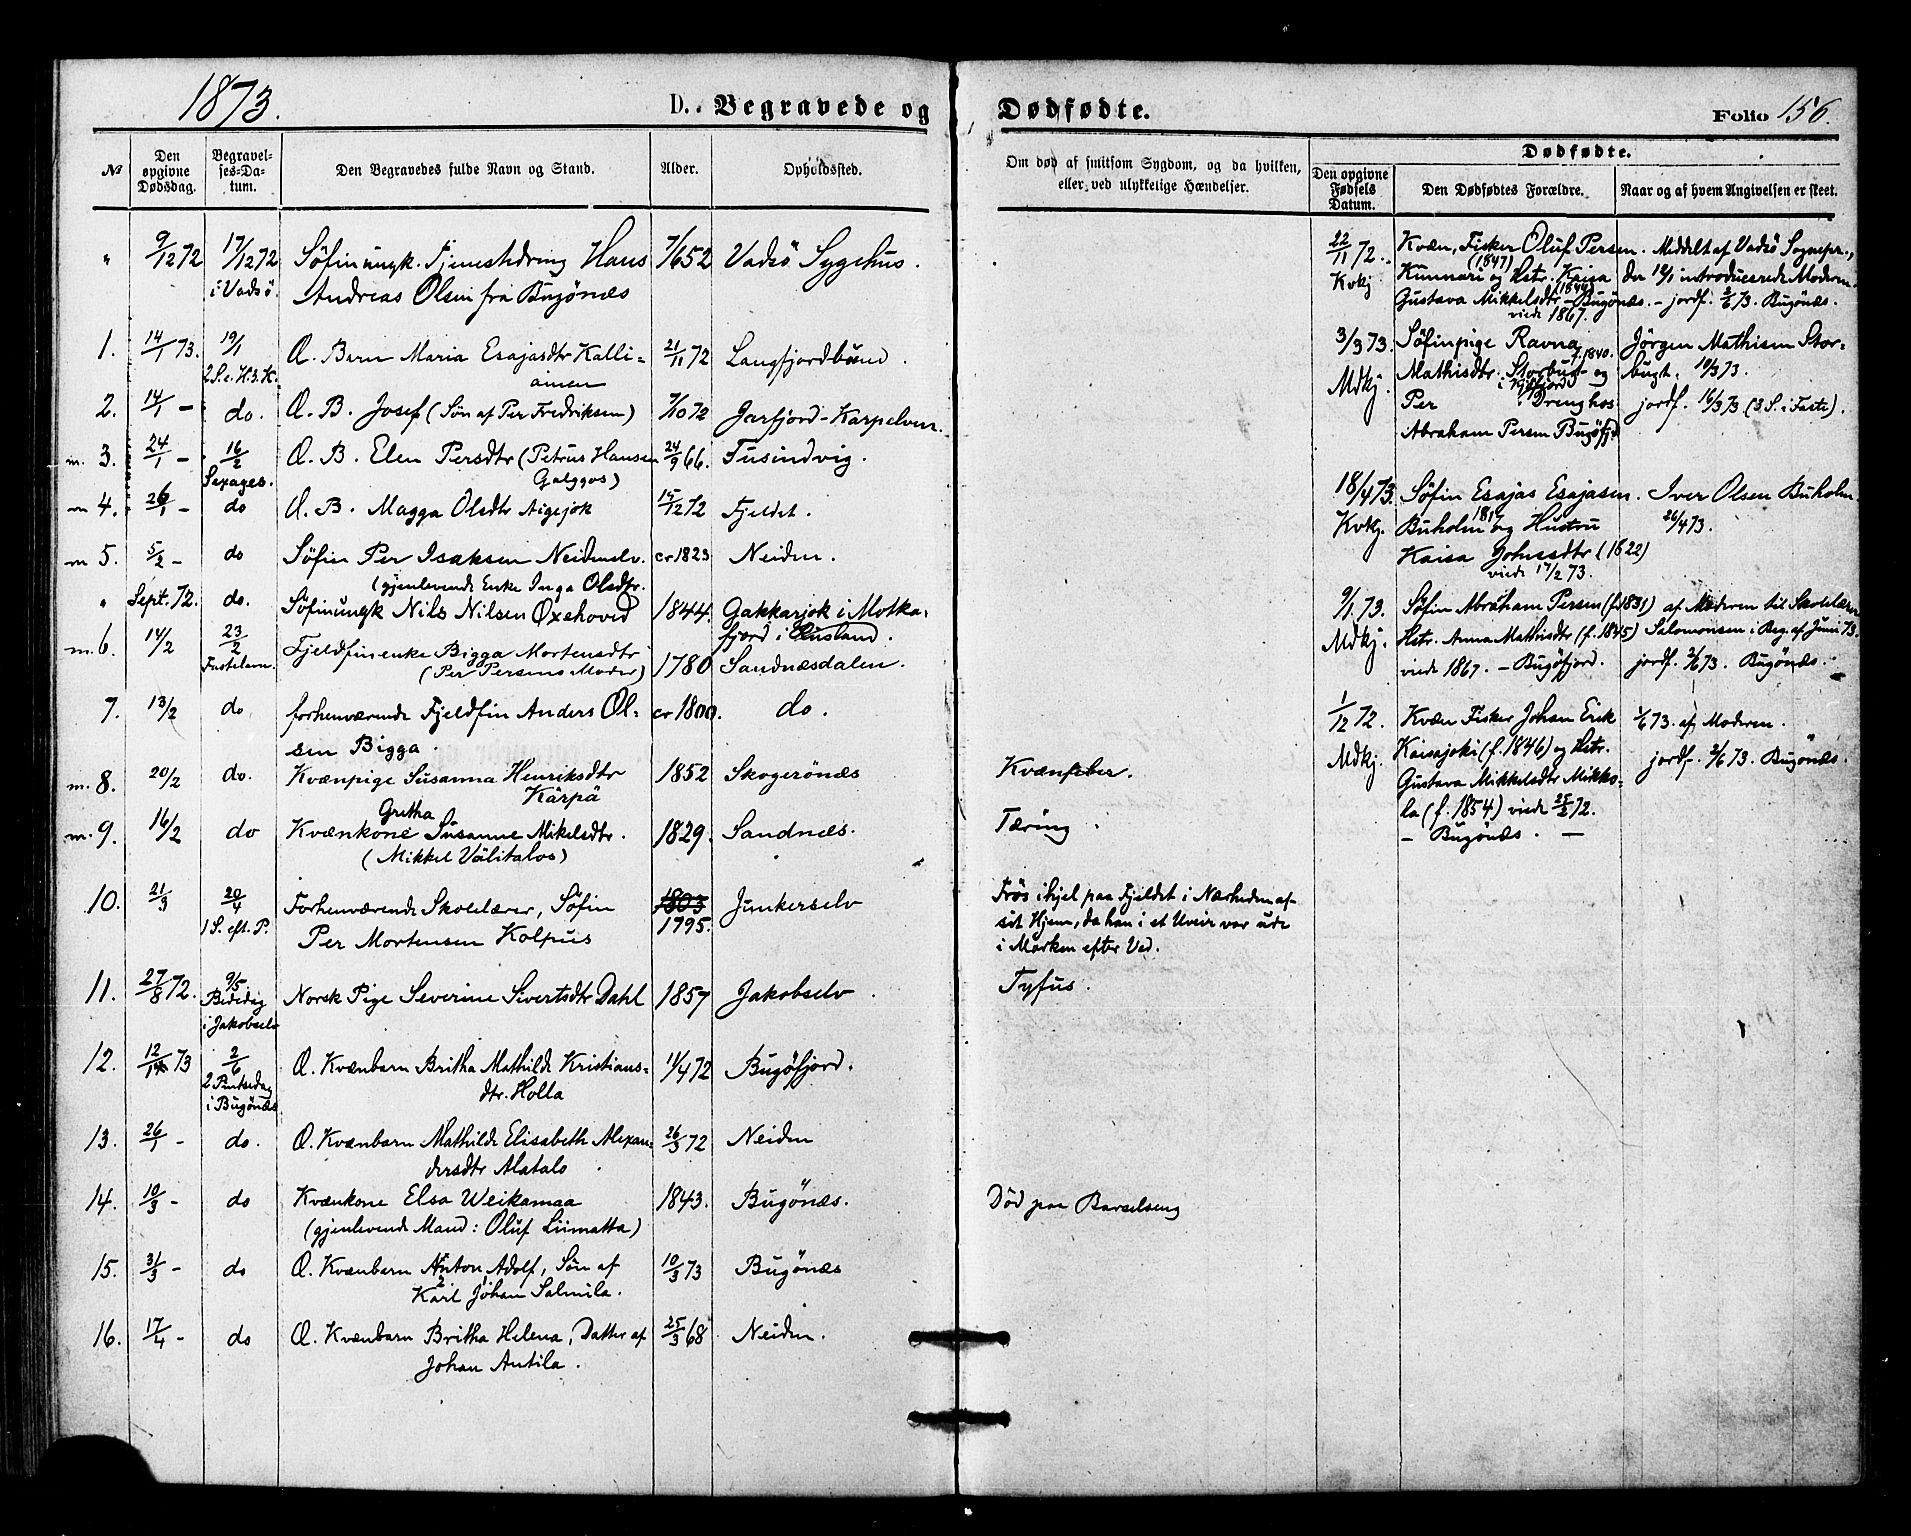 1873.
D. Begravede og
Dødfødte.
Folio 156.
№
Den opgivne Dødsdag.
Begravelses-Datum.
Den Begravedes fulde Navn og Stand.
Alder.
Opholdssted.
Om død af smitsom Sygdom, og da hvilken,
eller ved ulykkelige Hændelser.
Dødfødte.
Den opgivne Fødsels Datum.
Den Dødfødtes Forældre.
Naar og af hvem Angivelsen er skeet.
" 9/12 72 17/12 72 Söfinungk. Tjenestedreng Hans 7/6 52 Vadsö Sygehus.
i Vadsö. Andreas Olsen fra Bugönæs
1. 14/1 73. 19/1 Æ. Barn Maria Esajasdtr Kalli- 21/11 72 Langfjordbund.
2 S. e. H. 3. K. ainen
2. 14/1 - do. Æ. B. Josef (Søn af Per Fredriksen) 7/10 72 Jarfjord-Karpelven.
m. 3. 24/1 - 16/2 Æ. B. Elen Persdtr (Petrus Hansen 24/9 66. Fusindvig.
Sexages. Galggos)
m 4. 26/1 - do Æ. B. Magga Olsdtr Aigejok 15/12 72 Fjeldet.
m 5. 5/2 - do Söfin Per Isaksen Neidenelv. cr 1823 Neiden.
(gjenlevende Enke Inga Olsdtr.
" Sept. 72. do. Söfinungk Nils Nilsen Oxehoved 1844. Gakkarjok i Motka-
fjord i Rusland.
m. 6. 14/2 23/2 Fjeldfinenke Bigga Mortensdtr 1780 Sandnæsdalen.
Fastelavn. (Per Persens Moder)
7. 13/2 do forhenværende Fjeldfin Anders Ol- cr 1800. do.
sen Bigga.
m. 8. 20/2 do. Kvænpige Susanna Henriksdtr 1852 Skogerönæs Kvænfeber.
Kärpä
Gretha
m. 9. 16/2 do Kvænkone Susanne Mikelsdtr. 1829. Sandnæs. Tæring.
(Mikkel Välitalos)
10. 21/3 20/4 Forhenværende Skolelærer, Söfin 1803 Junkerselv Frös ihjel paa Fjeldet i Nærheden af
1 S. eft. P. Per Mortensen Kolpus 1795. sit Hjem, da han i et Uveir var ude
i Marken efter Ved.
11. 27/8 72. 9/5 Norsk Pige Severine Sivertsdtr Dahl 1857 Jakobselv. Tyfus.
Bededag
i Jakobselv
12. 12/1 73 2/6 Æ. Kvænbarn Britha Mathilde Kristians- 11/4 72 Bugöfjord.
2 Pintsedag dtr. Holla
i Bugönæs
13. 26/1 - do. Æ. Kvænbarn Mathilde Elisabeth Alexan- 26/3 72 Neiden
dersdtr Alatalo.
14. 10/3 - do Kvænkone Elsa Weikamaa 1843. Bugönæs. Död paa Barselseng
(gjenlevende Mand: Oluf Liimatta)
15. 31/3 - do Æ. Kvænbarn Anton Adolf, Søn af 10/3 73 Bugönæs
Karl Johan Salmila.
16. 17/4 - do Æ. Kvænbarn Britha Helena, Datter af 25/3 68 Neiden.
Johan Antila.
22/11 72. Kvæn, Fisker Oluf Persen. Meddelt af Vadsö Sognepr.,
(1847)
Kvkj Kunnari og Hstr. Kaisa der 12/1 introducerede Moderen.
(1844)
Gustava Mikkelsdtr - Bugönæs. - jordf. 2/6 73. Bugönæs.
viede 1867.
3/3 73. Söfinpige Ravna Jörgen Mathisen Stor-
f. 1840.
Mdkj. Mathisdtr. Storbugt og bugt. 10/3 73.
i Kjöfjord
Per Drenghos jordf. 16/3 73 (3. S. i Faste).
Abraham Persen Bugöfjd
18/4 73. Söfin Esajas Esajasen. Iver Olsen Buholm
1817
Kvkj. Buholm og Hustru 26/4 73.
Kaisa Johnsdtr (1822)
viede 17/2 73.
9/1. 73. Söfin Abraham Persen (f. 1831) af Moderen til Skolelærer
Mdkj. Hstr. Anna Mathisdtr (f. 1845) Salomonsen i Beg. af Juni 73.
viede 1867. - Bugöfjord. jordf. 2/6 73. Bugönæs.
1/12 72. Kvæn Fisker Johan Erik 1/6 73. af Moderen.
Mdkj. Kaisajoki (f. 1846) og Hstr. jordf. 2/6 73. Bugönæs.
Gustava Mikkelsdtr Mikko-
la (f. 1854) viede 25/2 72.
- Bugönæs. -